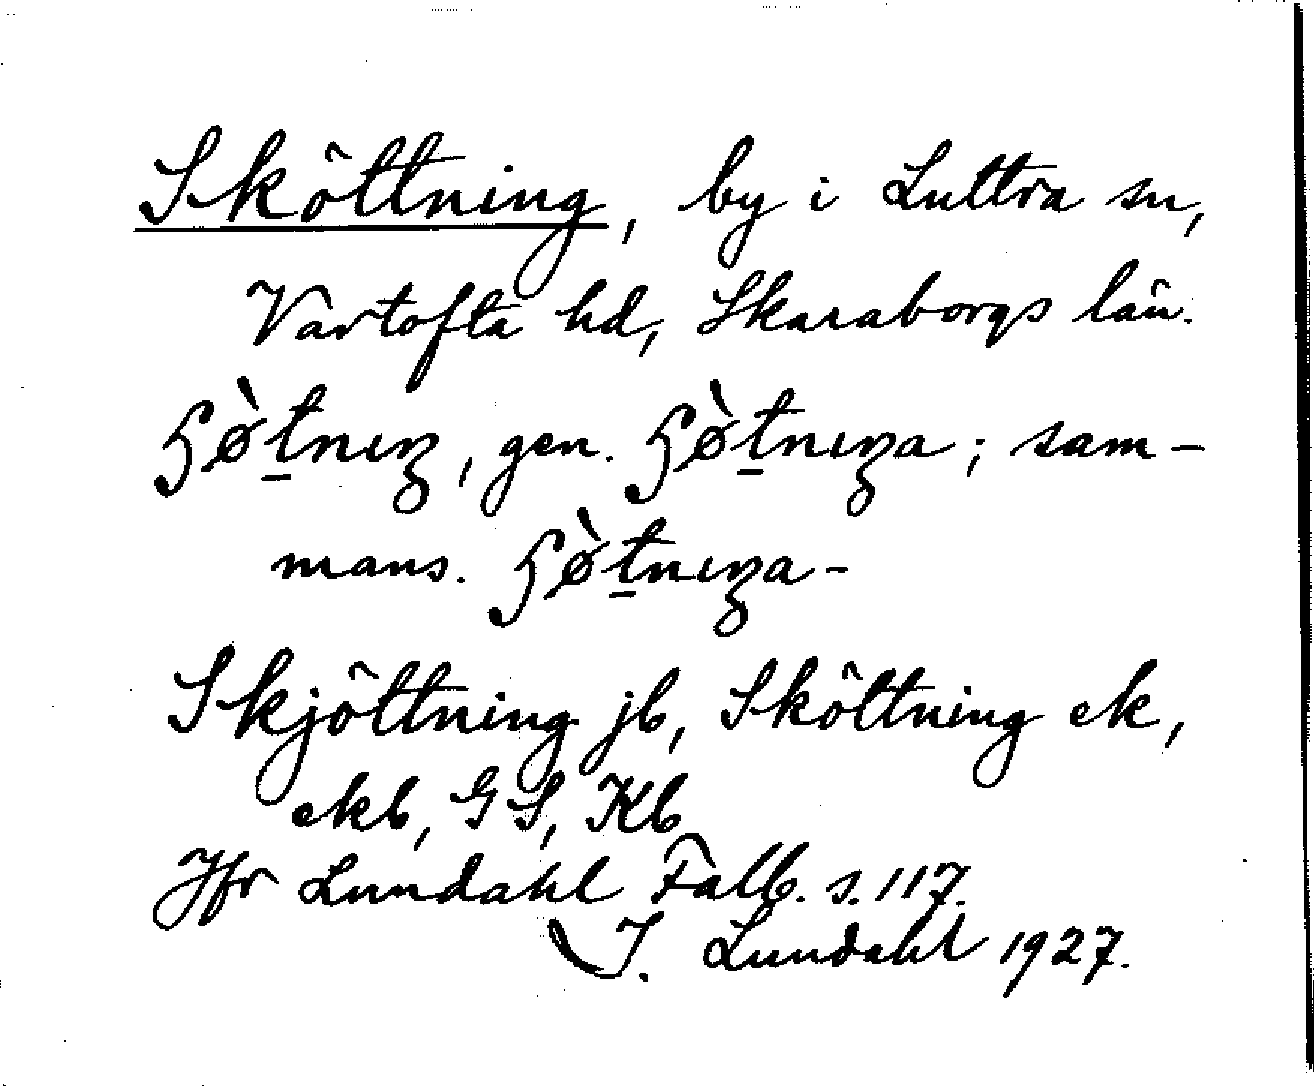 Sköttning, by i Luttra sn,
Vartofta hd, Skaraborgs län.
ʃø̀t̠nɪŋ, gen. ʃø̀t̠nɪŋa; sam-
mans. ʃø̀t̠nɪŋa-
Skjöttning jb, Sköttning ek,
ekb, GS, Kb
Jfr Lundahl Falb. s. 117.
I. Lundahl 1927.